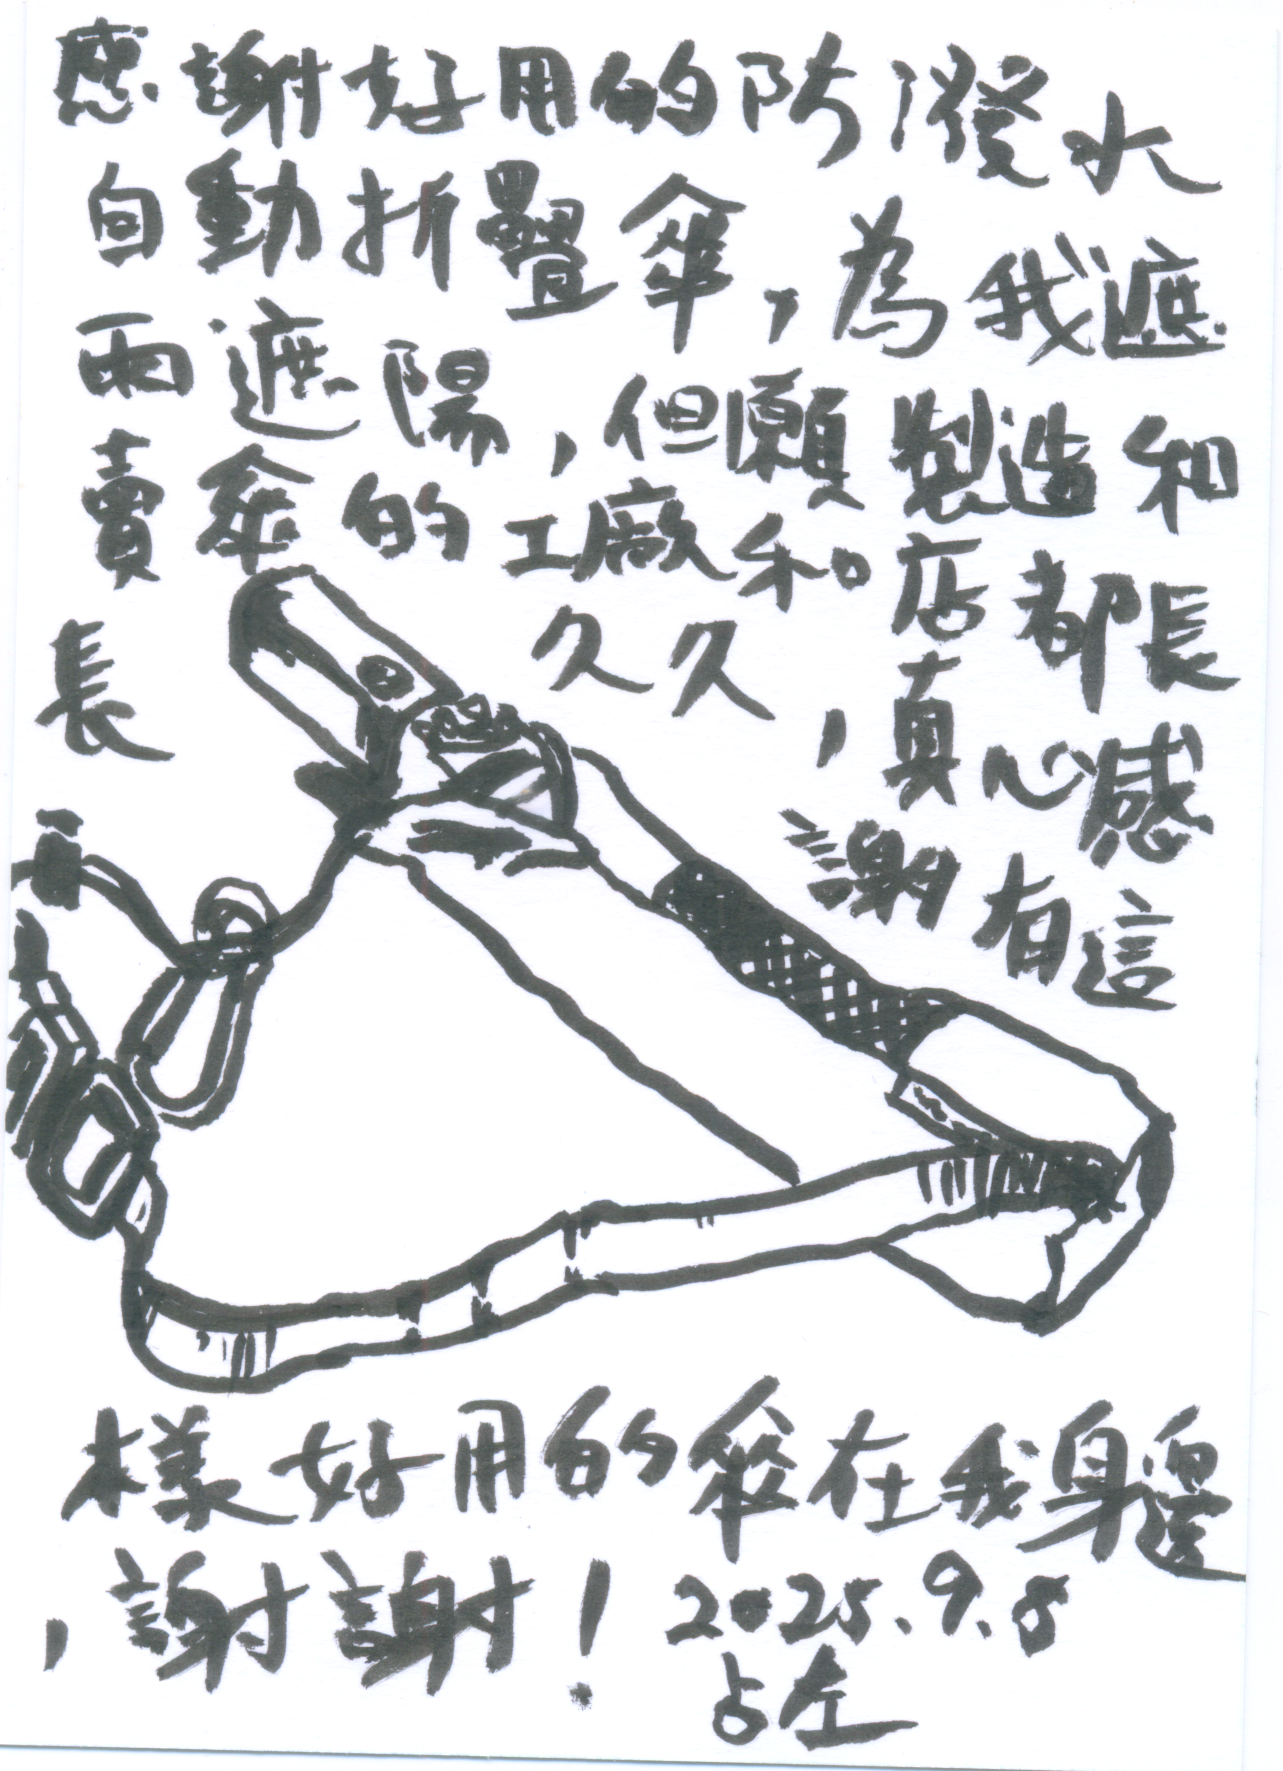 感謝好用的防潑水
自動折疊傘，為我遮
雨遮陽，但願製造和
賣傘的工廠和店都長
長久久，真心感
謝有這
樣好用的傘在我身邊
，謝謝！2025.9.8
占左